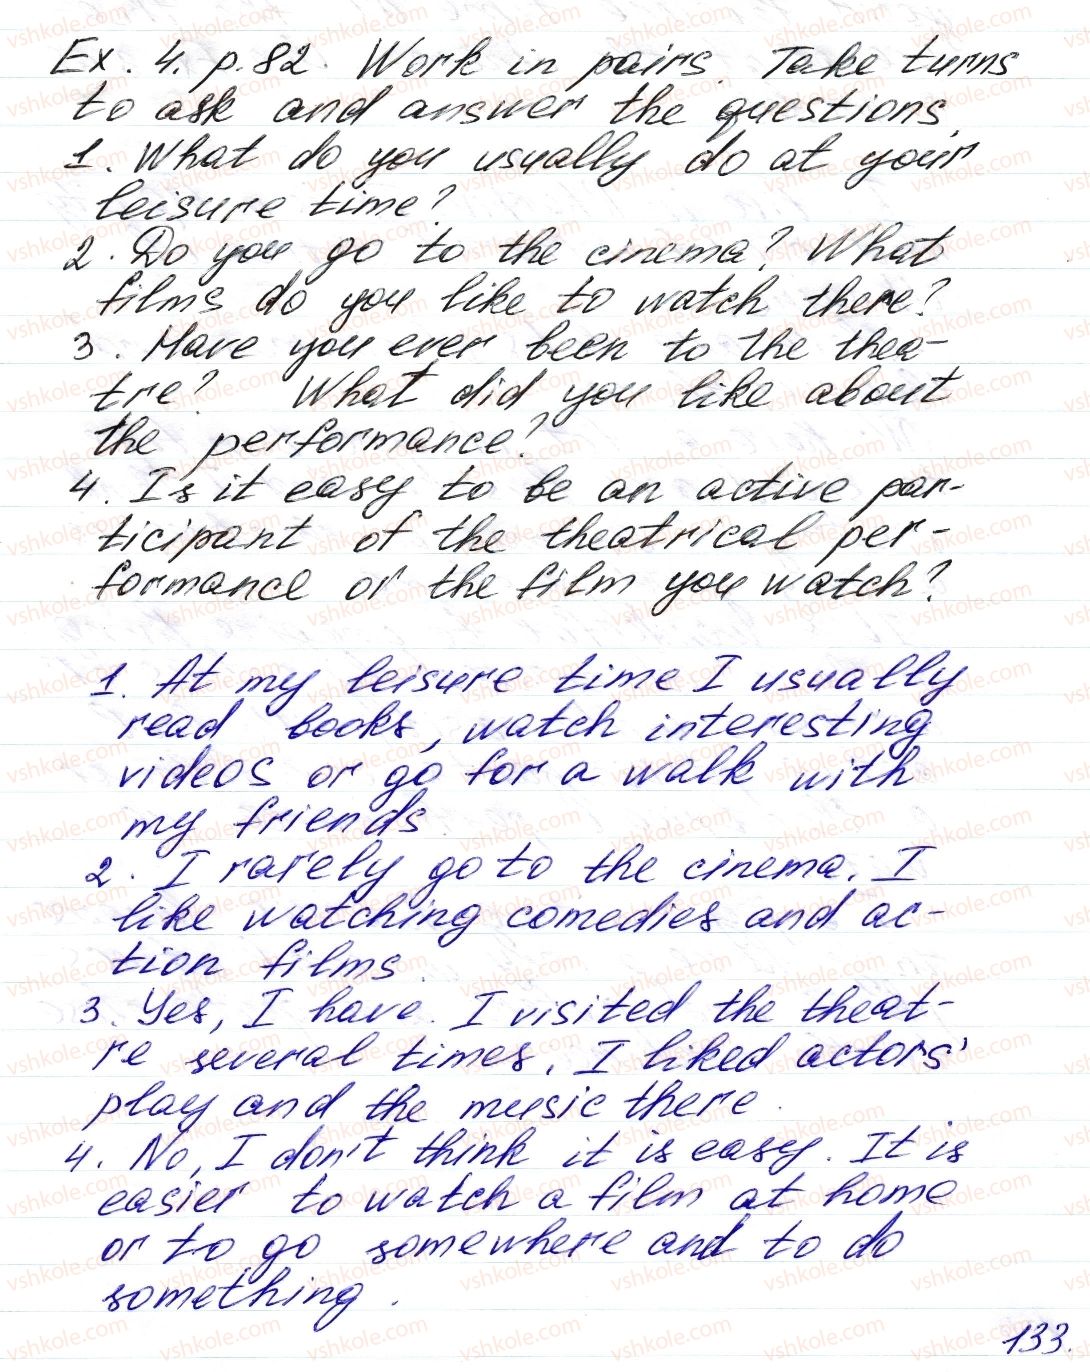 Ex. 4. p. 82. Work in pairs. Take turns
to ask and answer the questions.
1. What do you usually do at your
leisure time?
2. Do you go to the cinema? What
films do you like to watch there?
3. Have you ever been to the thea-
tre? What did you like about
the performance?
4. Is it easy to be an active par-
ticipant of the theatrical per-
formance or the film you watch?
1. At my leisure time I usually
read books, watch interesting
videos or go for a walk with
my friends
2. I rarely go to the cinema. I
like watching comedies and ac-
tion films.
3. Yes, I have. I visited the theat-
re several times. I liked actors'
play and the music there.
4. No, I don't think it is easy. It is
easier to watch a film at home
or to go somewhere and to do
something.
133.
vshkole.com